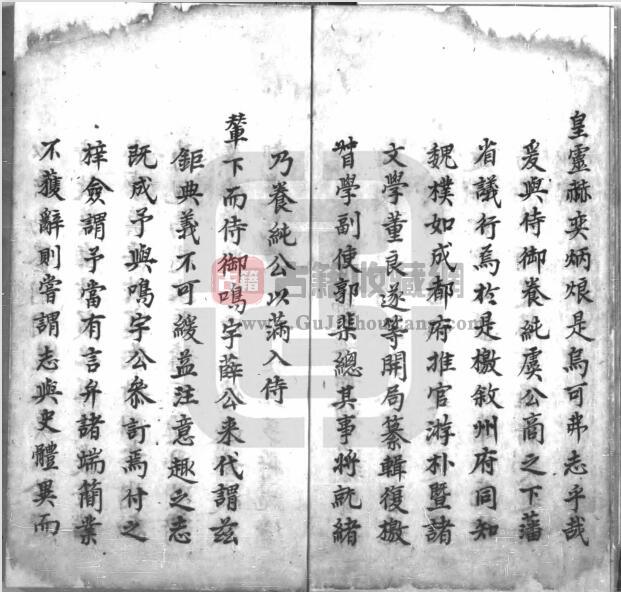 皇靈赫奕炳烺是烏可弗志乎哉
爰與侍御養純虞公啇之下藩
省議行焉於是檄敘州府同知
魏樸如成都府推官游朴暨諸
文學董良遂等開局纂輯復檄
督學副使郭棐總其事將就緒
乃養純公以滿入侍
輦下而侍御鳴宇薛公来代謂兹
鉅典義不可緩益注意趣之志
既成予與鳴宇公叅訂焉付之
梓僉謂予當有言弁諸端簡業
不獲辭則嘗謂志與史體異而
古籍 古籍收藏網
www.GuJiShouCang.com